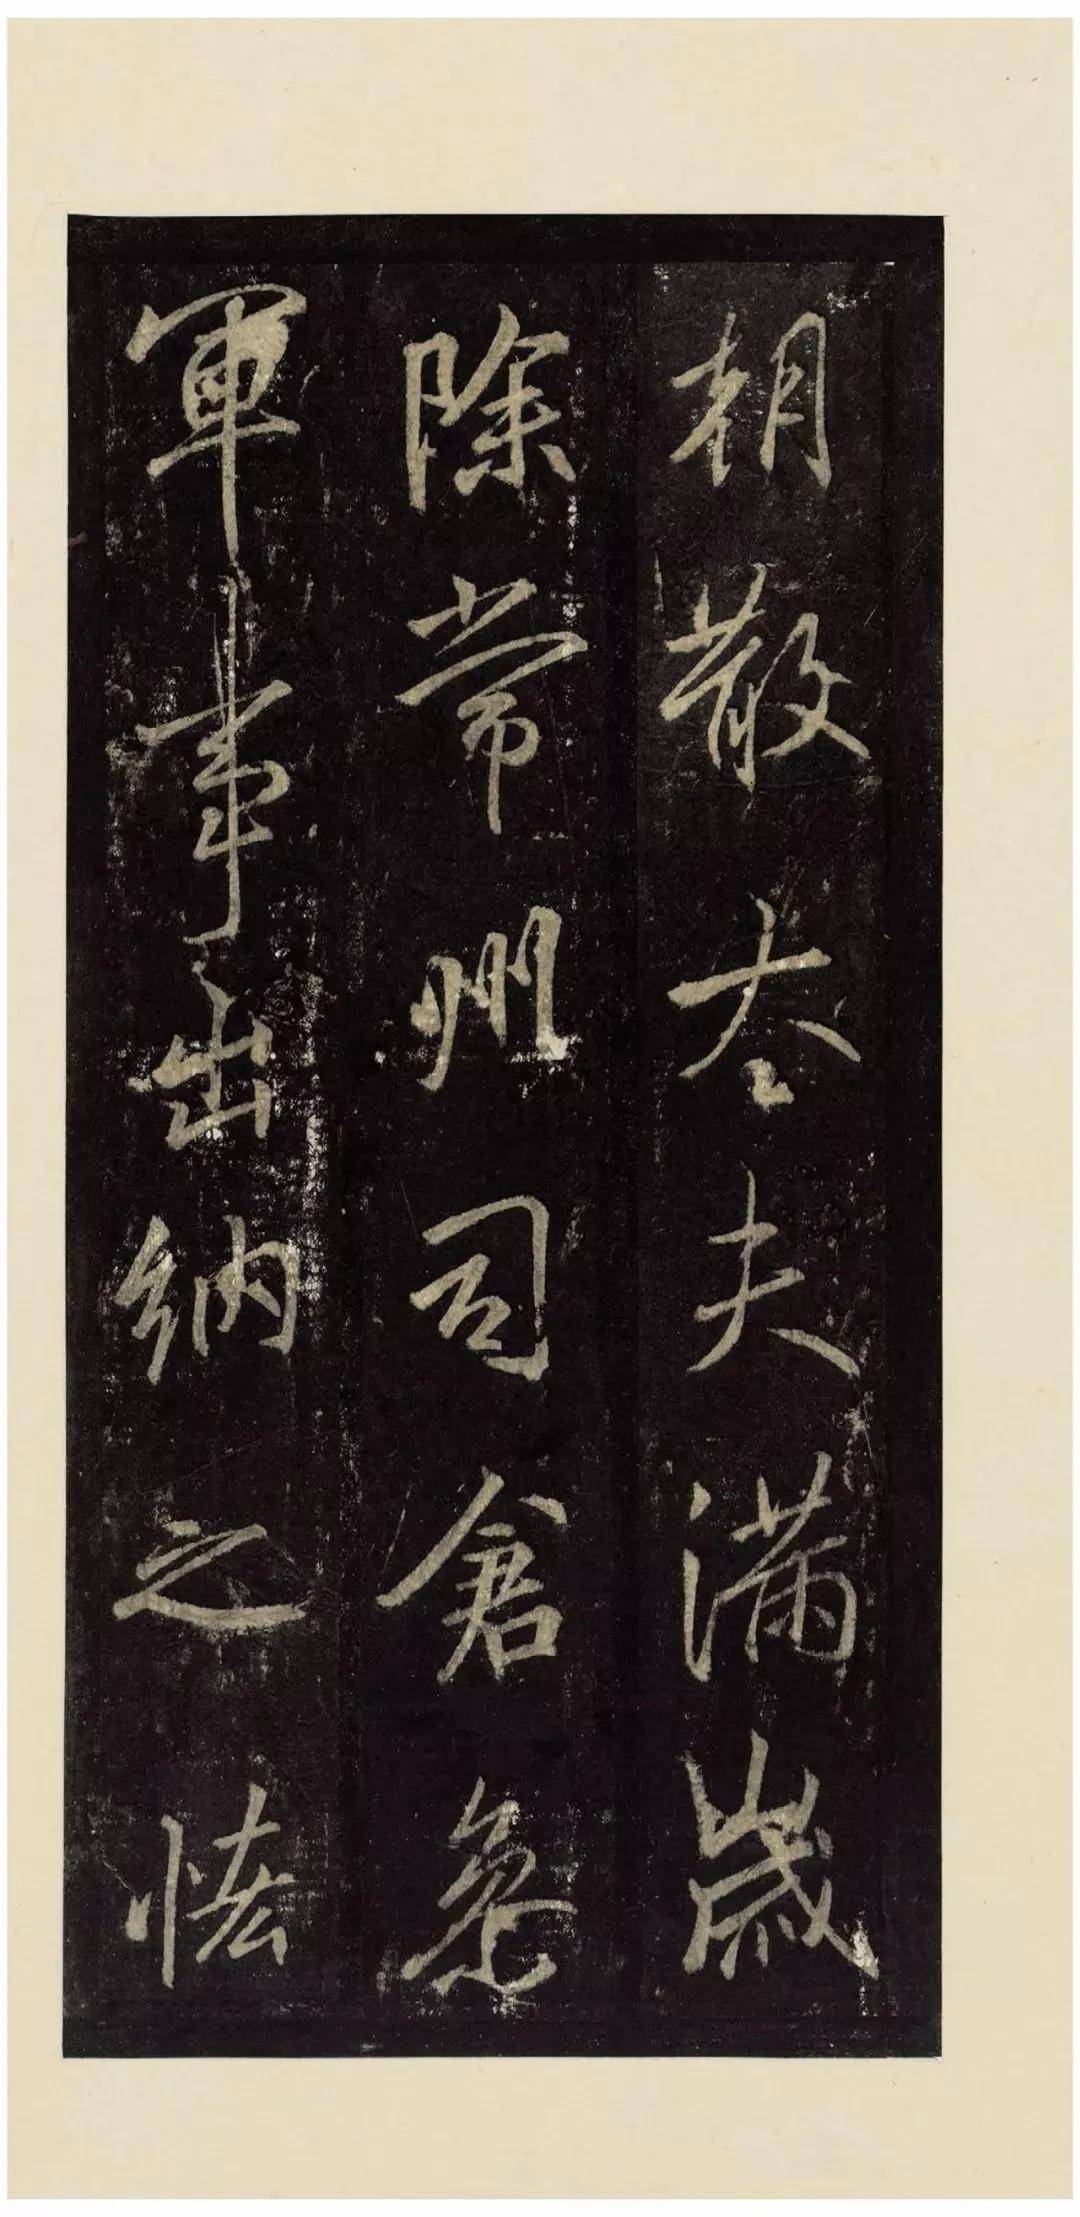 朝散太夫滿歲
除常州司倉參
軍事出納之恡